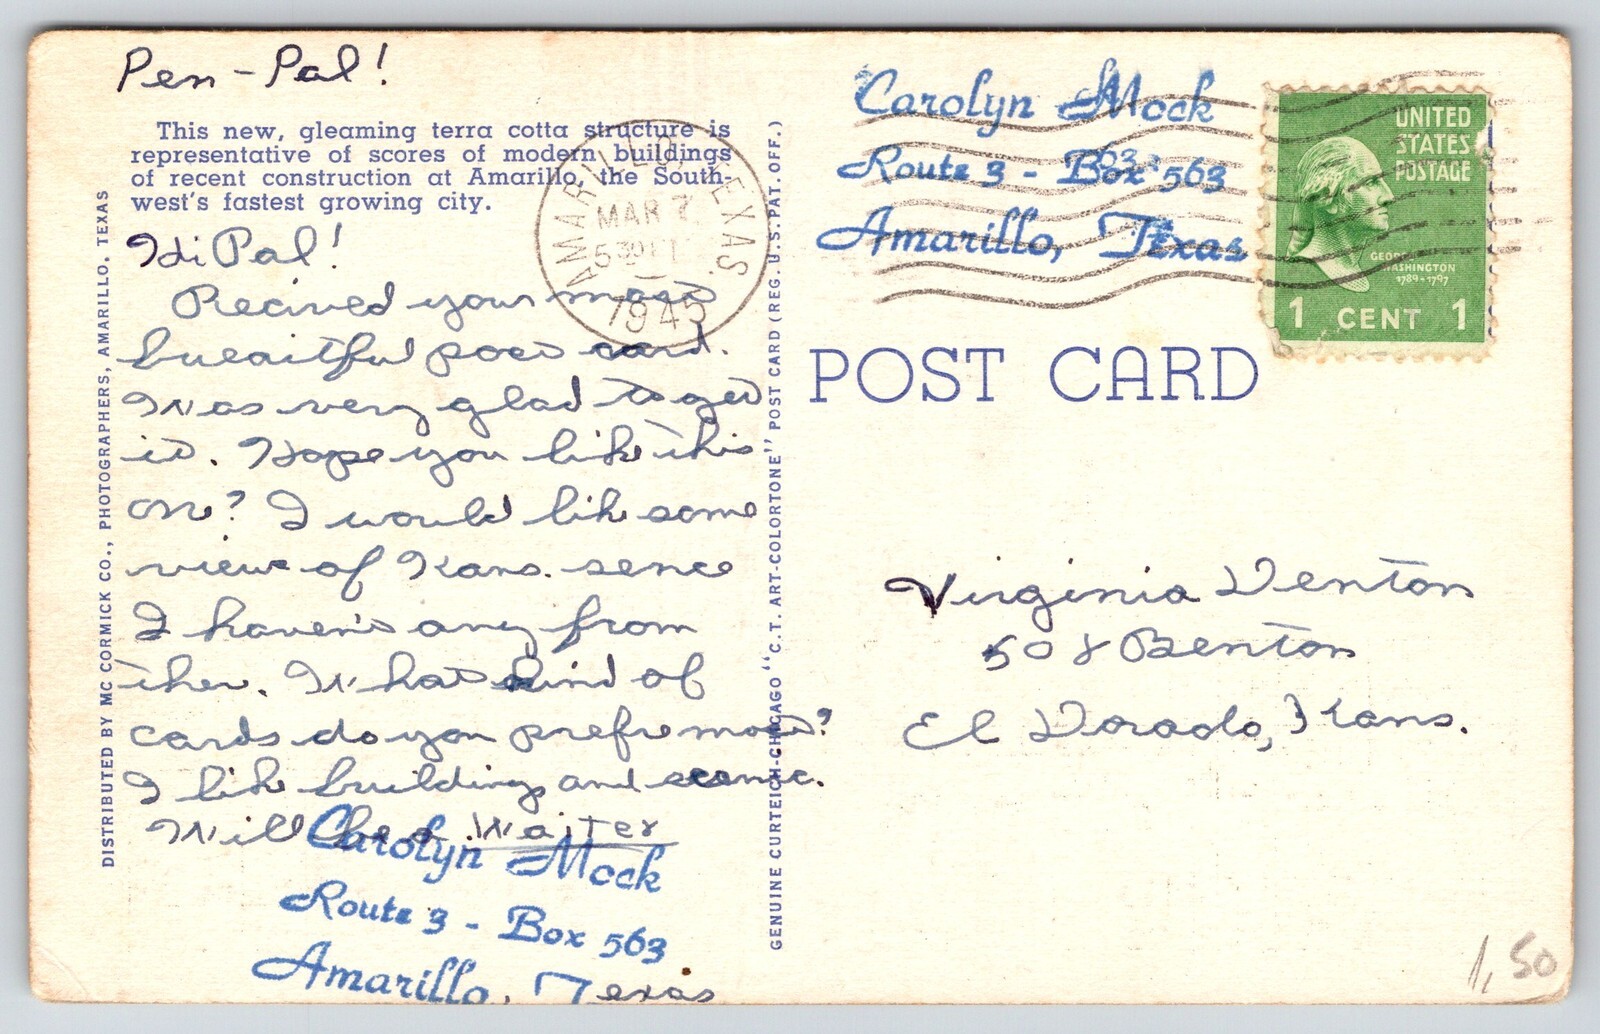 Pen-Pal!
This new, gleaming terra cotta structure is
representative of scores of modern buildings
of recent construction at Amarillo, the South-
west's fastest growing city.
Hi Pal!
Recived your most
bueaitful post card.
Was very glad to get
it. Hope you like this
one? I would like some
view of Kans. sence
I haven't any from
ther. What kind of
cards do you prefre most?
I like buildings and scenic.
Will be a Waiter
Carolyn Mock
Route 3 - Box 563
Amarillo, Texas
DISTRIBUTED BY MC CORMICK CO., PHOTOGRAPHERS, AMARILLO, TEXAS
GENUINE CURTEICH-CHICAGO "C.T. ART-COLORTONE" POST CARD (REG. U.S. PAT. OFF.)
AMARILLO TEXAS.
MAR 7
5 30 PM
1945
Carolyn Mock
Route 3 - Box 563
Amarillo, Texas
UNITED
STATES
POSTAGE
GEORGE
WASHINGTON
1789-1797
1 CENT 1
POST CARD
Virginia Denton
508 Benton
El Dorado, Kans.
1,50